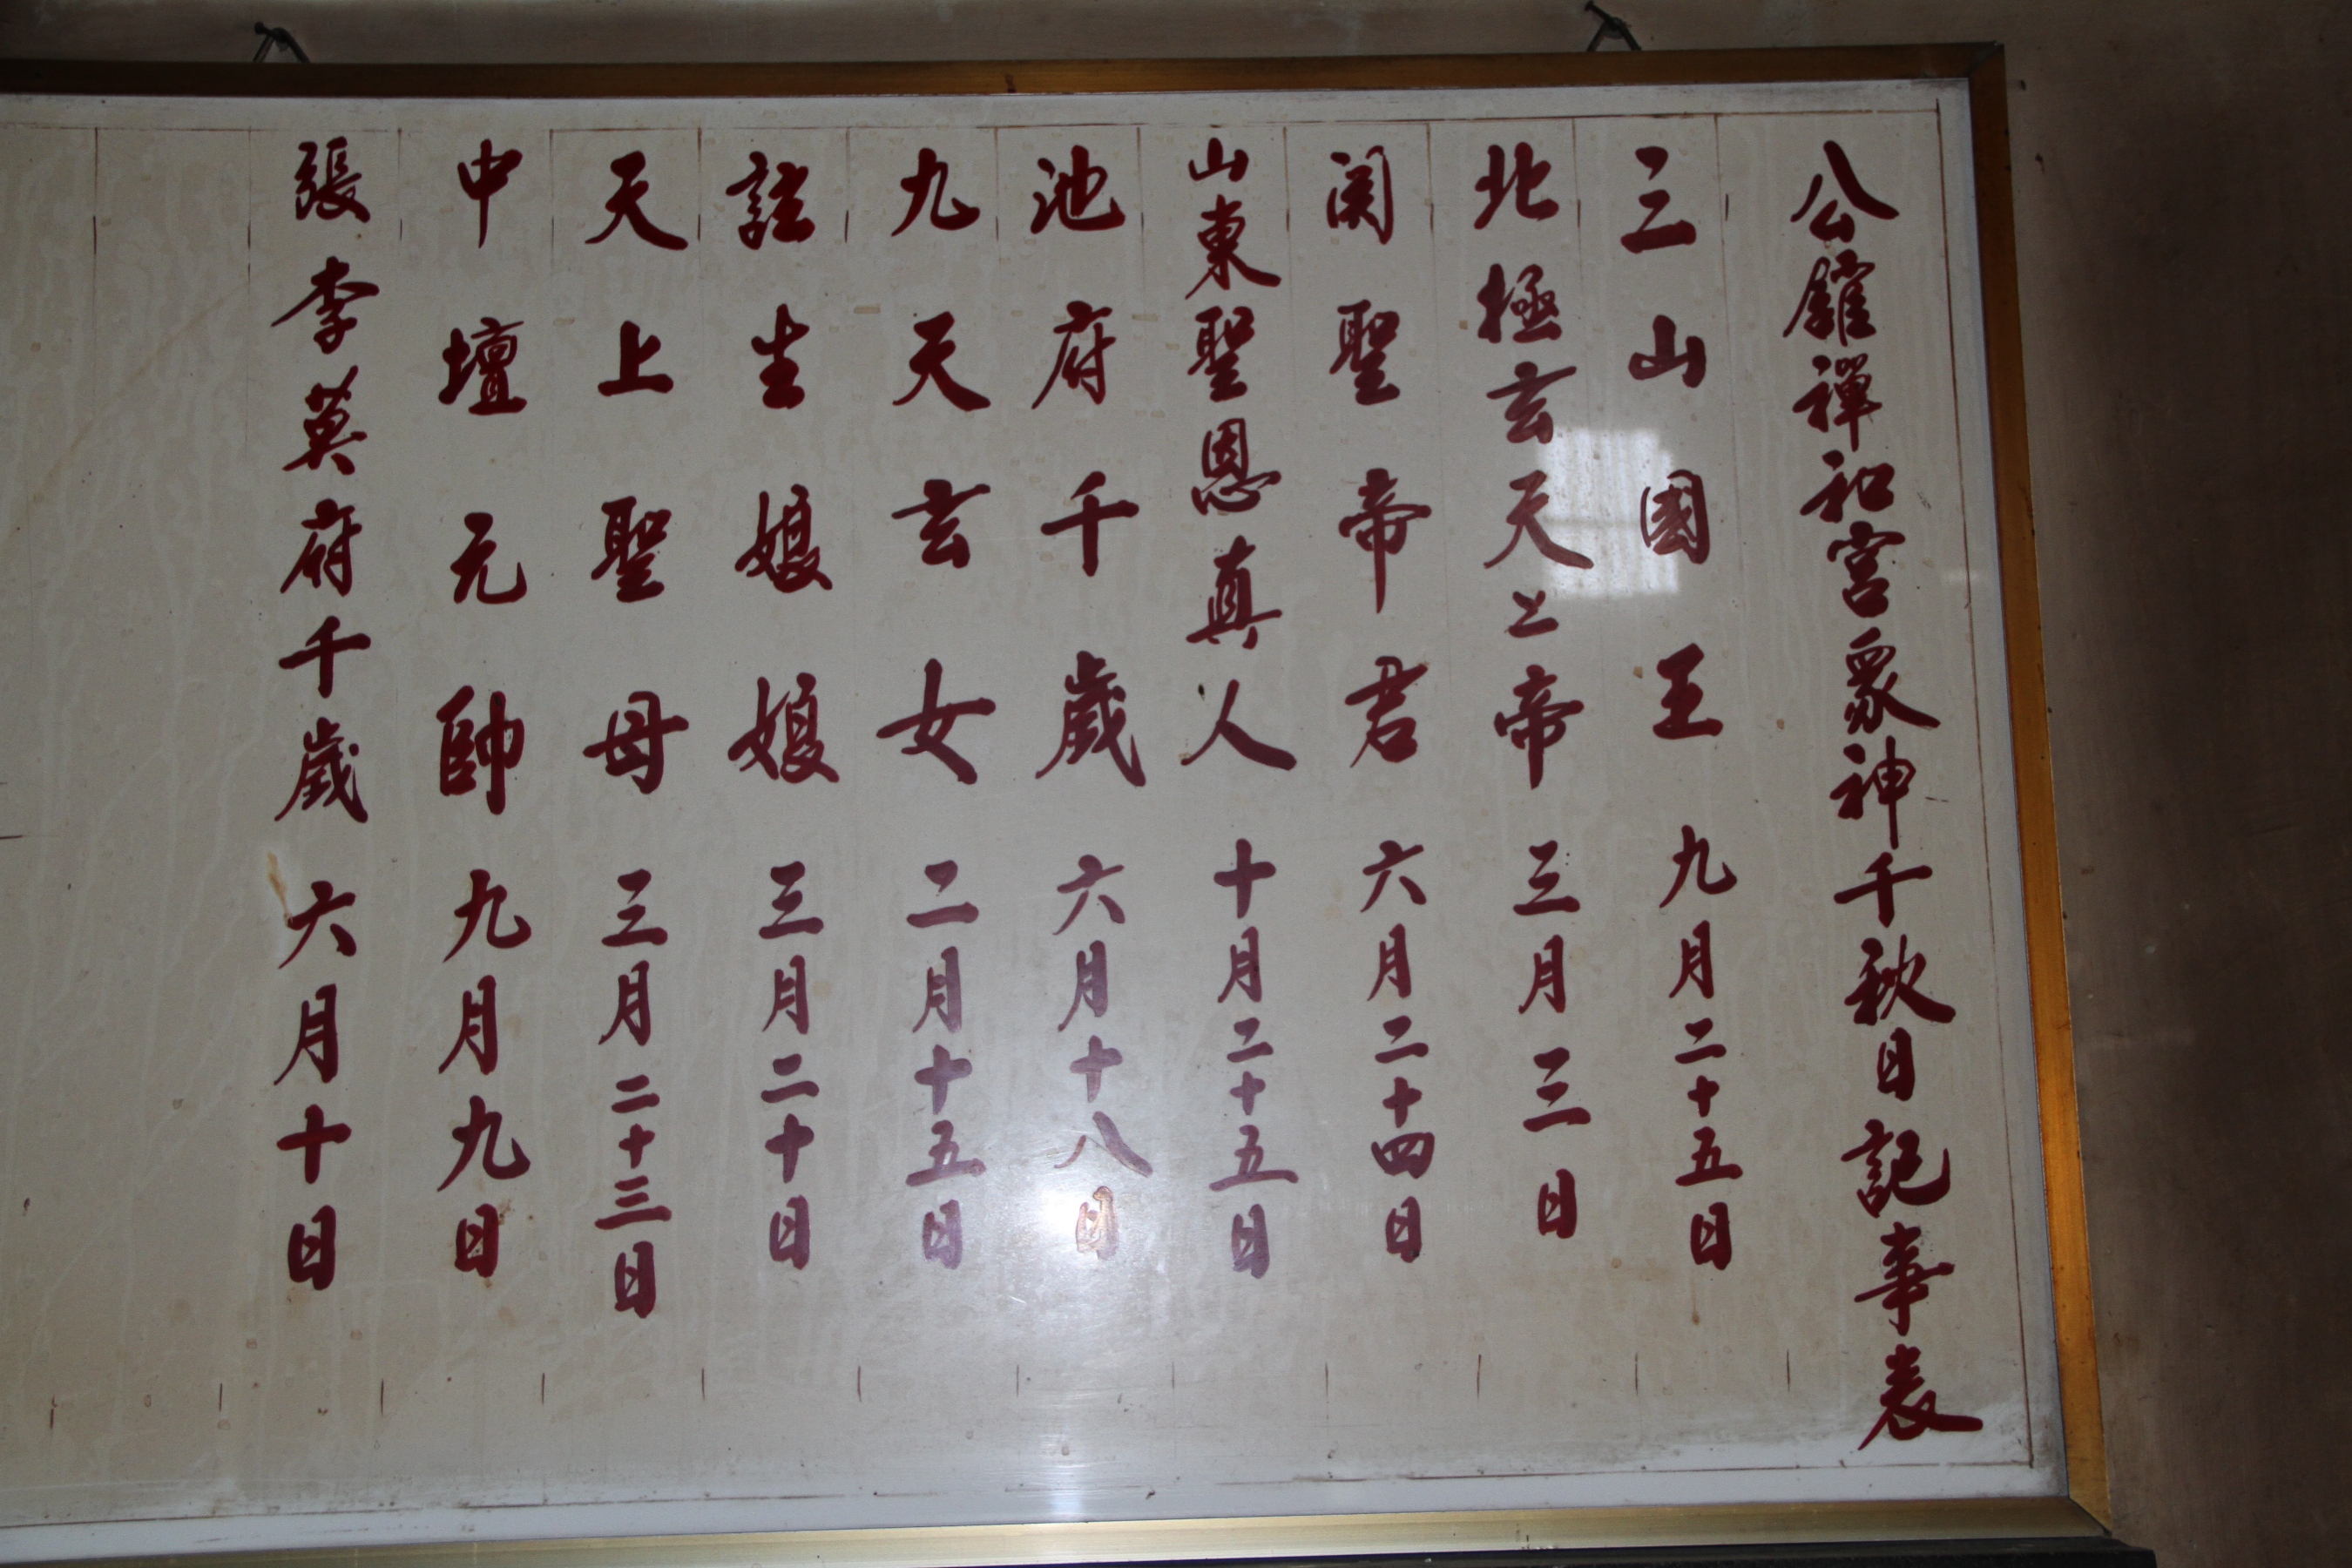 公館禪和宮眾神千秋日記事表
三山國王 九月二十五日
北極玄天上帝 三月三日
関聖帝君 六月二十四日
山東聖恩真人 十月二十五日
池府千歲 六月十八日
九天玄女 二月十五日
註生娘娘 三月二十日
天上聖母 三月二十三日
中壇元帥 九月九日
張李莫府千歲 六月十日